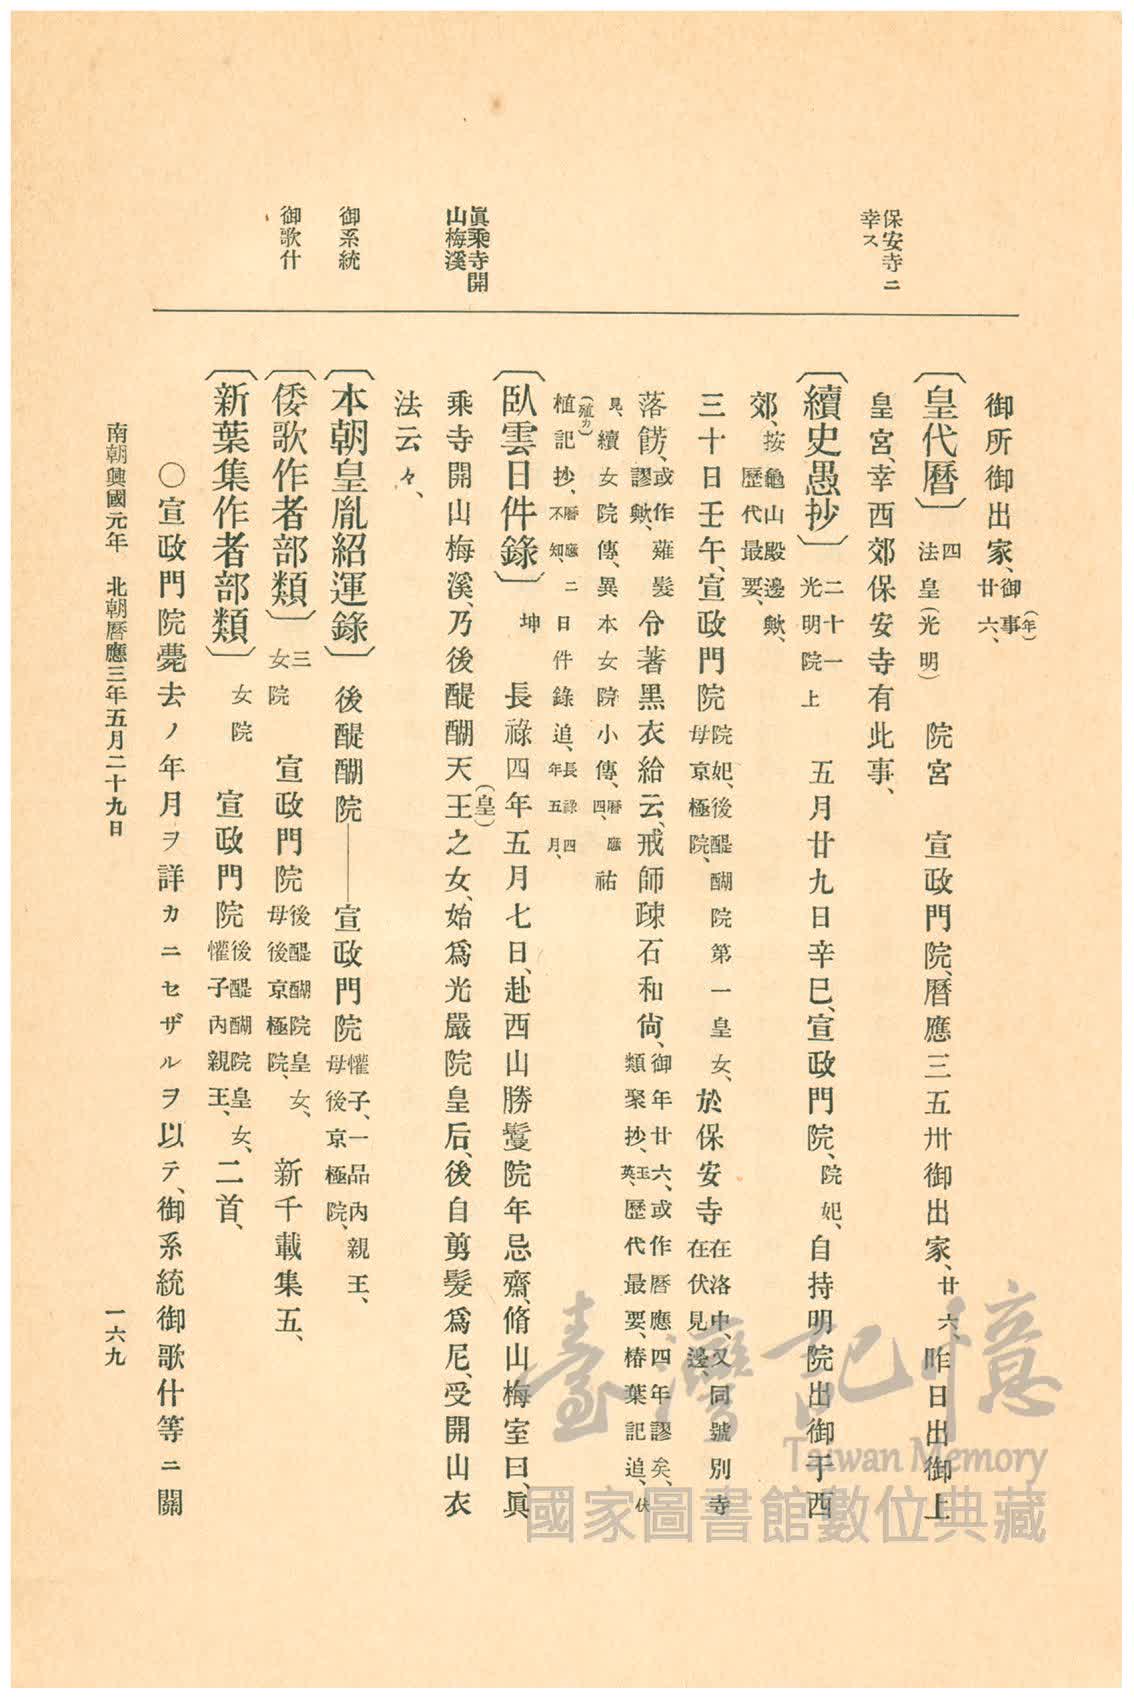 保安寺ニ
幸ス
眞乘寺開
山梅溪
御系統
御歌什
御所御出家、御事(年)廿六、
〔皇代曆〕四 法皇(光明) 院宮 宣政門院、曆應三五卅御出家、廿六、昨日出御上
皇宮、幸西郊保安寺有此事、
〔續史愚抄〕二十一 光明院上 五月廿九日辛巳、宣政門院、院妃、自持明院出御于西
郊、按龜山殿邊歟、歷代最要、
三十日壬午、宣政門院院妃、後醍醐院第一皇女、母京極院、於保安寺在洛中、又同號別寺在伏見邊、
落餝、或作薙髮謬歟、令著黑衣給云、戒師疎石和尙、御年廿六、或作曆應四年謬矣、類聚抄、玉英、歷代最要、椿葉記追、伏
見、續女院傳、異本女院小傳、曆應四、祐
植(殖カ)記抄、曆應二不知、日件錄追、長祿四年五月、
〔臥雲日件錄〕坤 長祿四年五月七日、赴西山勝鬘院年忌齋、脩山梅室曰、眞
乘寺開山梅溪、乃後醍醐天王(皇)之女、始爲光嚴院皇后、後自剪髮爲尼、受開山衣
法云々、
〔本朝皇胤紹運錄〕 後醍醐院――宣政門院懽子、一品內親王、母後京極院、
〔倭歌作者部類〕三 女院 宣政門院後醍醐院皇女、母後京極院、 新千載集五、
〔新葉集作者部類〕 女院 宣政門院後醍醐院皇女、懽子內親王、 二首、
○宣政門院薨去ノ年月ヲ詳カニセザルヲ以テ、御系統御歌什等ニ關
南朝興國元年 北朝曆應三年五月二十九日
一六九
臺灣記憶
Taiwan Memory
國家圖書館數位典藏